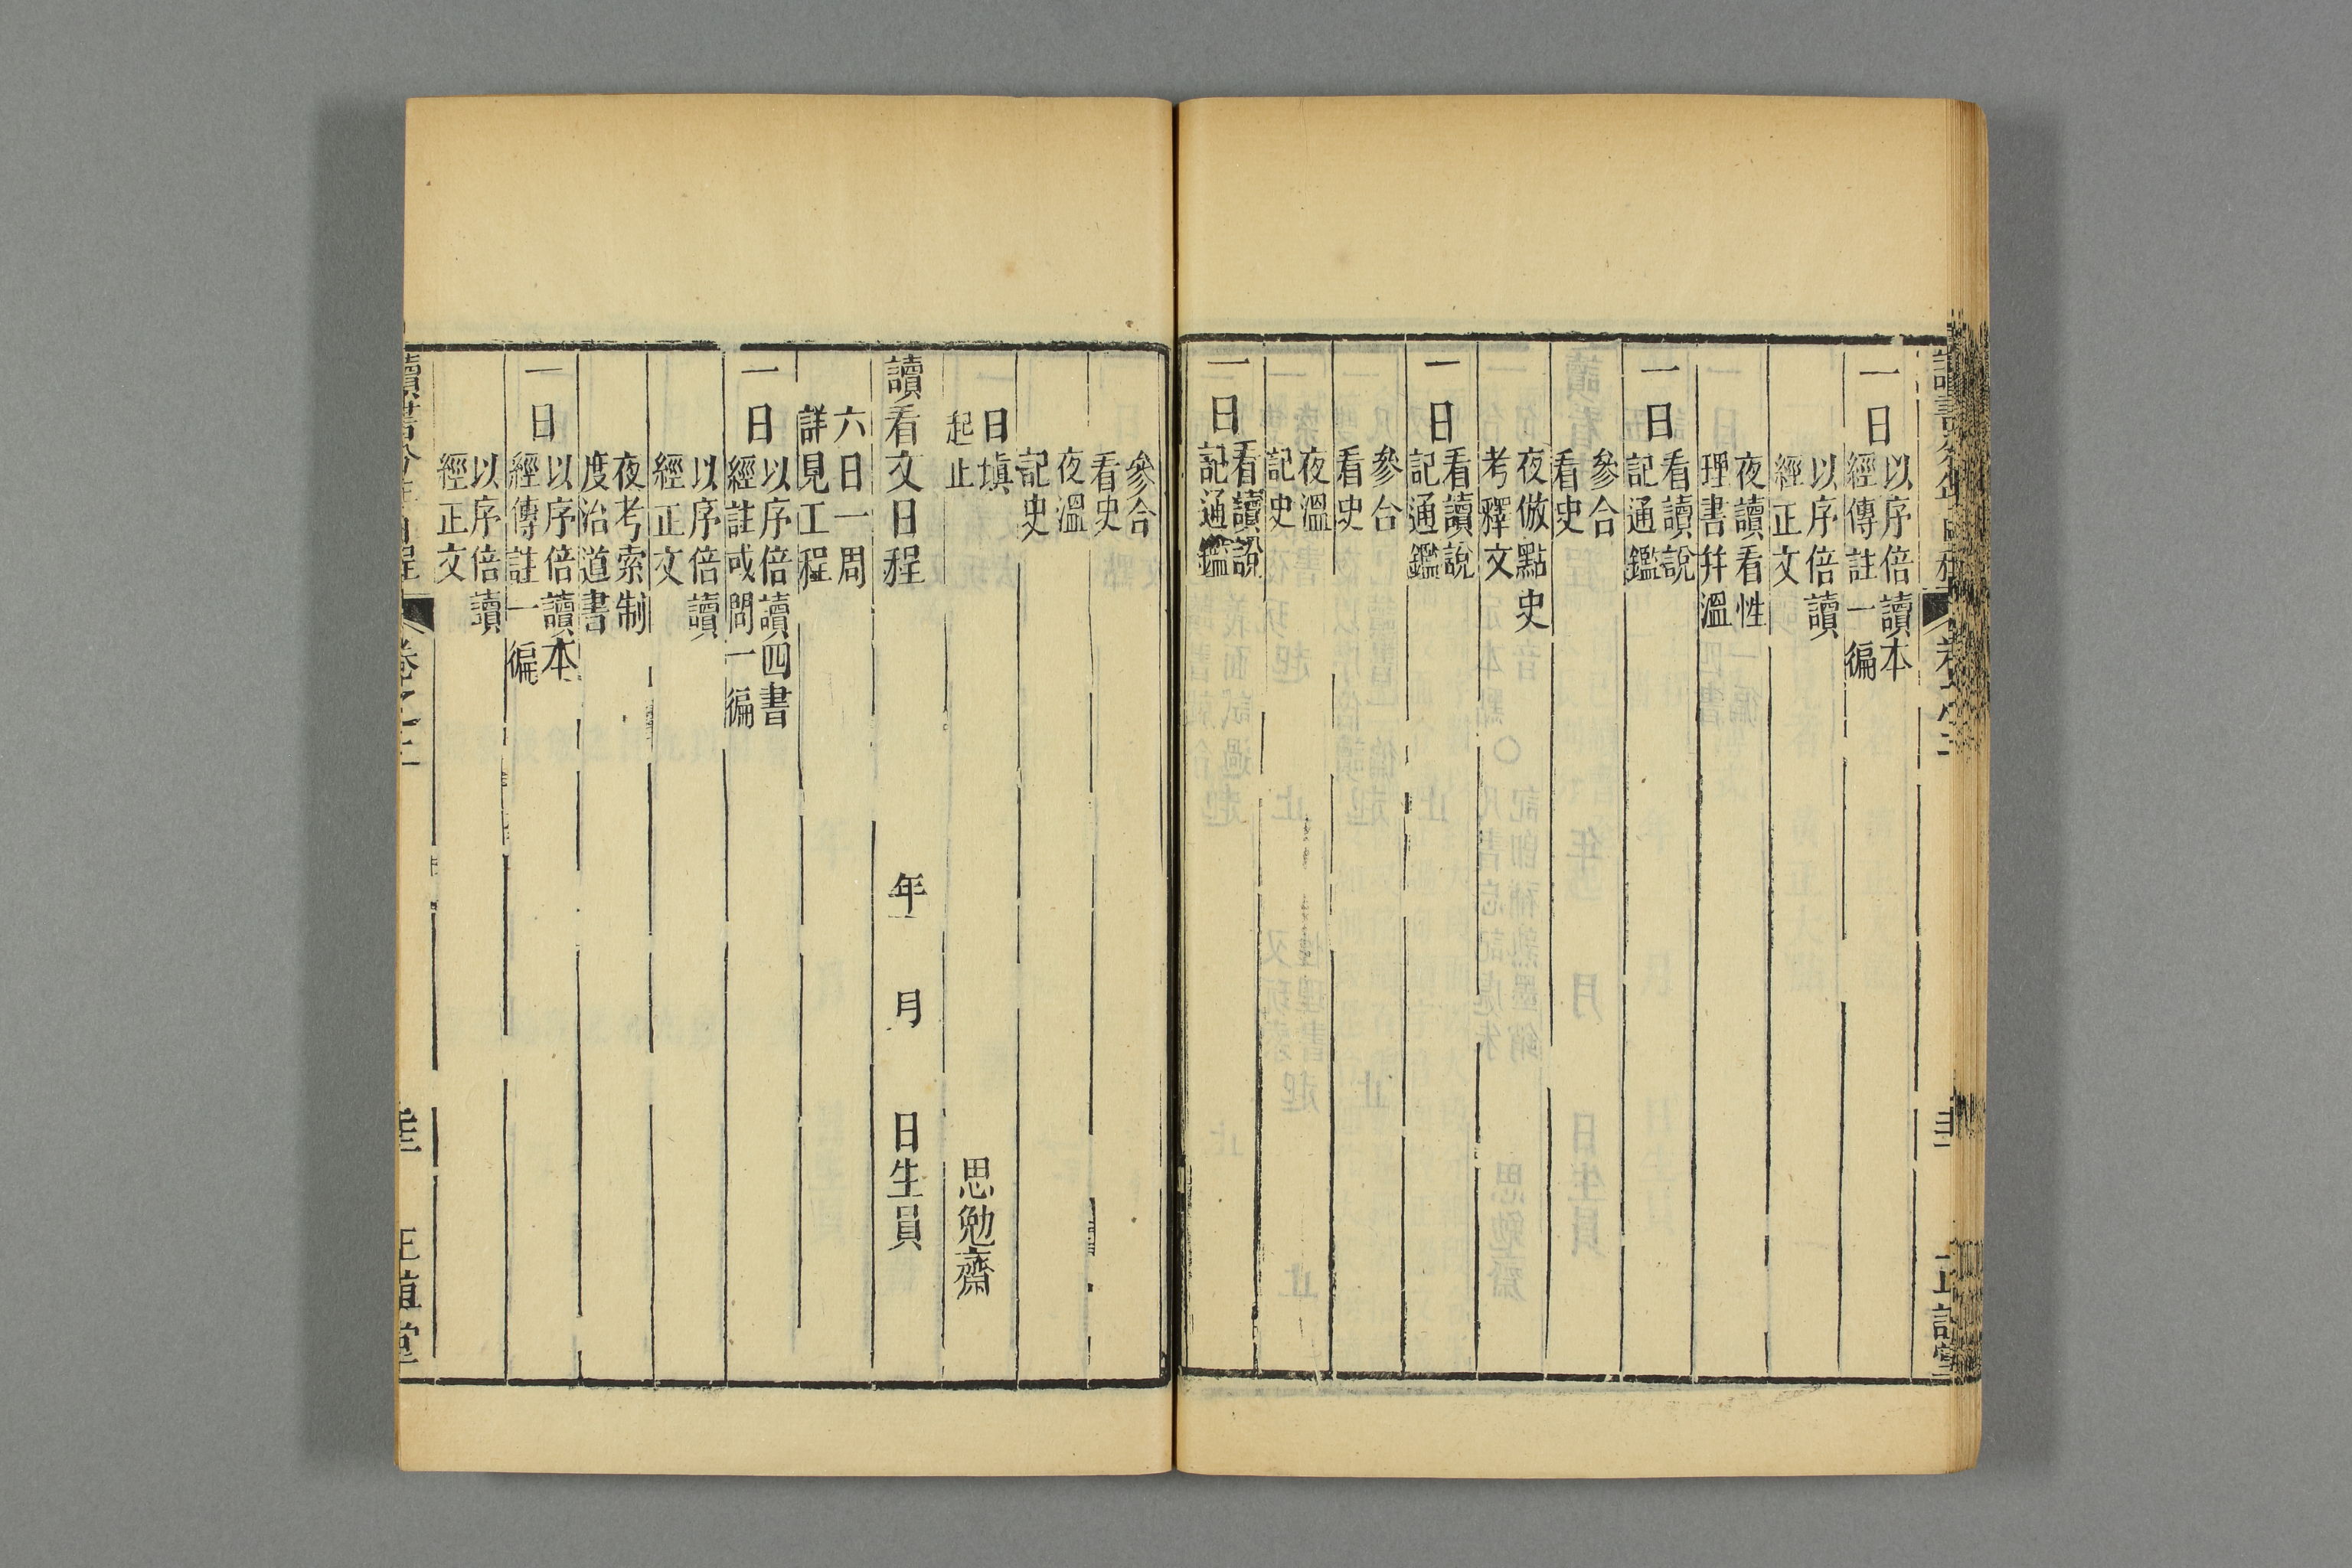 一日
以序倍讀本
經傳註一徧
以序倍讀
經正文
夜讀看性
理書幷溫
一日
看讀說
記通鑑
參合
看史
夜倣點史
考釋文
一日
看讀說
記通鑑
參合
看史
夜溫
記史
一日
看讀說
記通鑑
參合
看史
夜溫
記史
日填
起止
思勉齋
讀看文日程 年 月 日生員
六日一周
詳見工程
一日
以序倍讀四書
經註或問一徧
以序倍讀
經正文
夜考索制
度治道書
一日
以序倍讀本
經傳註一徧
以序倍讀
經正文
讀書分年日程 卷之三 正誼堂